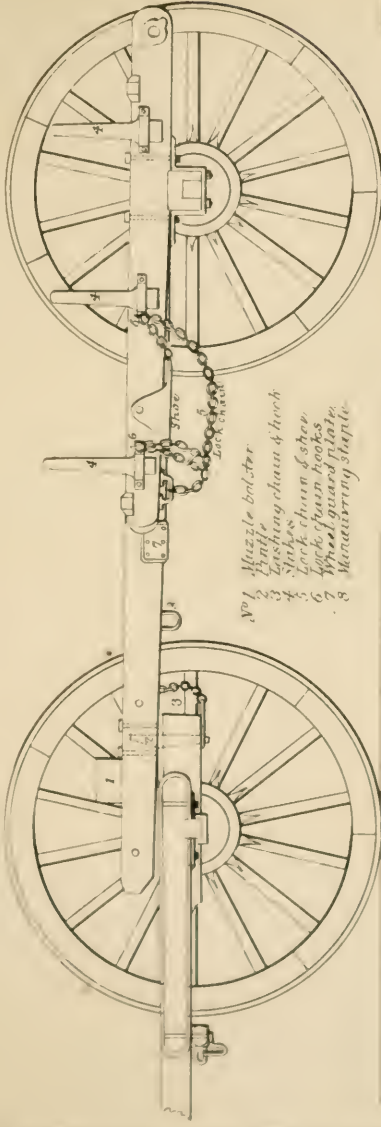 No 1 Muzzle bolster
2 Pintle
3 Lashing chain & hook
4 Stakes
5 Lock chain & shoe
6 Lock chain hooks
7 Wheel guard plate
8 Manœuvring staple
1
2
3
4
4
4
6
7
8
Shoe
5
Lock chain